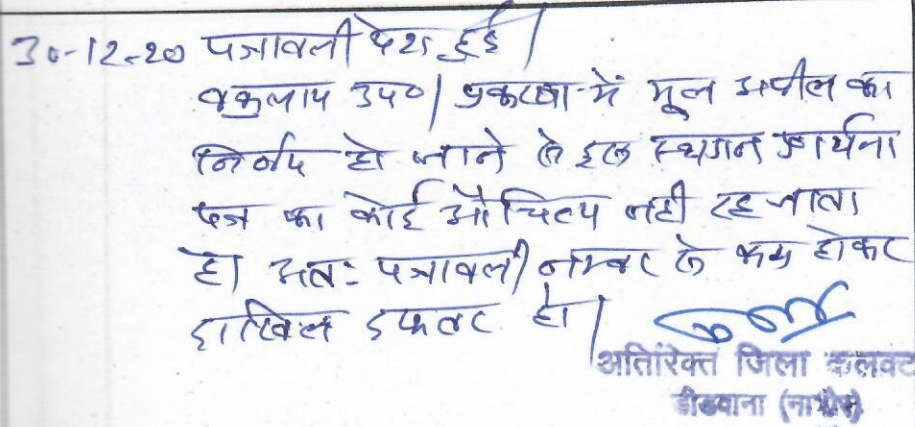 30-12-20 पत्रावली पेश हुई।
वकुलाय उप०। प्रकरण में मूल अपील का
निर्णय हो जाने से इस स्थगन प्रार्थना
पत्र का कोई औचित्य नहीं रह जाता
है। अतः पत्रावली नम्बर से कम होकर
दाखिल दफ्तर हो।
अतिरिक्त जिला कलक्ट
डीडवाना (नागौर)